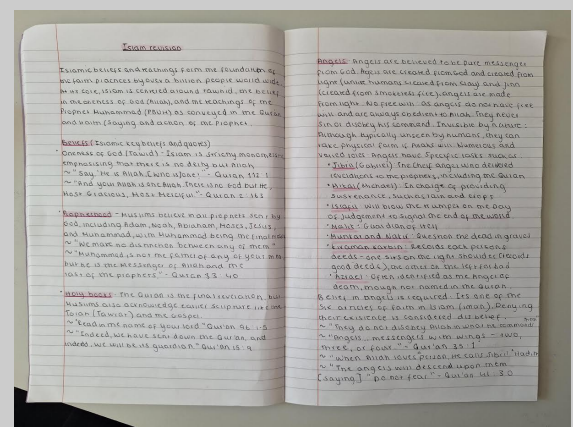 Islam revision
Islamic beliefs and teachings form the foundation of
the faith practices by over a billion people world wide
At its core, Islam is centred around Tawhid, the belief
in the oneness of God (Allah), and the teachings of the
Prophet Muhammad (PBUH) as conveyed in the Quran
and hadith (saying and action of the Prophet
Beliefs (Islamic key beliefs and quotes)
Oneness of God (Tawid) - Islam is strictly monotheis
emphasising that there is no deity but Allah
~ "Say, 'He is Allah, [who is] one'." - Quran 112:1
~ "And your Allah is one Allah. There is no God but He,
Most Gracious, Most Merciful." - Quran 2:163
Prophethood - Muslims believe many prophets sent by
God, including Adam, Noah, Abraham, Moses, Jesus,
and Muhammad, with Muhammad being the final
~ "We make no distinction between any of them"
~ "Muhammad is not the father of any of your men
but he is the Messenger of Allah and the
last of the prophets" - Quran 33:40
Holy books - The Quran is the final revelation, but
Muslims also acknowledge earlier scripture like the
Torah (Tawrat) and the Gospel
~ "Read in the name of your lord" Quran 96:1-5
~ "Indeed, we have sent down the Qur'an, and
indeed, we will be its guardian" Qur'an 15:9
Angels - Angels are believed to be pure messenger
from God. Angels are created from God and created from
light (unlike humans created from clay and Jinn
(created from smokeless fire), angels are made
from light. No free will: As angels do not have free
will and are always obedient to Allah. They never
sin or disobey his command. Invisible by nature:
Although typically unseen by humans, they can
take physical form if Allah wills. Numerous and
varied roles: Angels have specific tasks such as
• Jibril (Gabriel): The chief angel who delivered
revelations to the prophets, including the Quran
• Mikail (Michael): In charge of providing
sustenance, such as rain and crops
• Israfil: will blow the trumpet on the day
of judgement to signal the end of the world.
• Malik: Guardian of Hell
• Munkar and Nakir: Question the dead in graves
• Kiraman Katibin: Records each persons
deeds - one sits on the right shoulder (records
good deeds), the other on the left for bad
• Azrael: Often identified as the Angel of
death, though not named in the Quran
Belief in angels is required: Its one of the
six articles of faith in Islam (iman). Denying
their existence is considered disbelief.
~ "They do not disobey Allah in what he command
~ "Angels... messengers with wings - two,
three, or four..." - Qur'an 35:1
~ "When Allah loves person, He calls Jibril" Hadith
~ "The angels will descend upon them
[saying] "Do not fear" - Qur'an 41:30